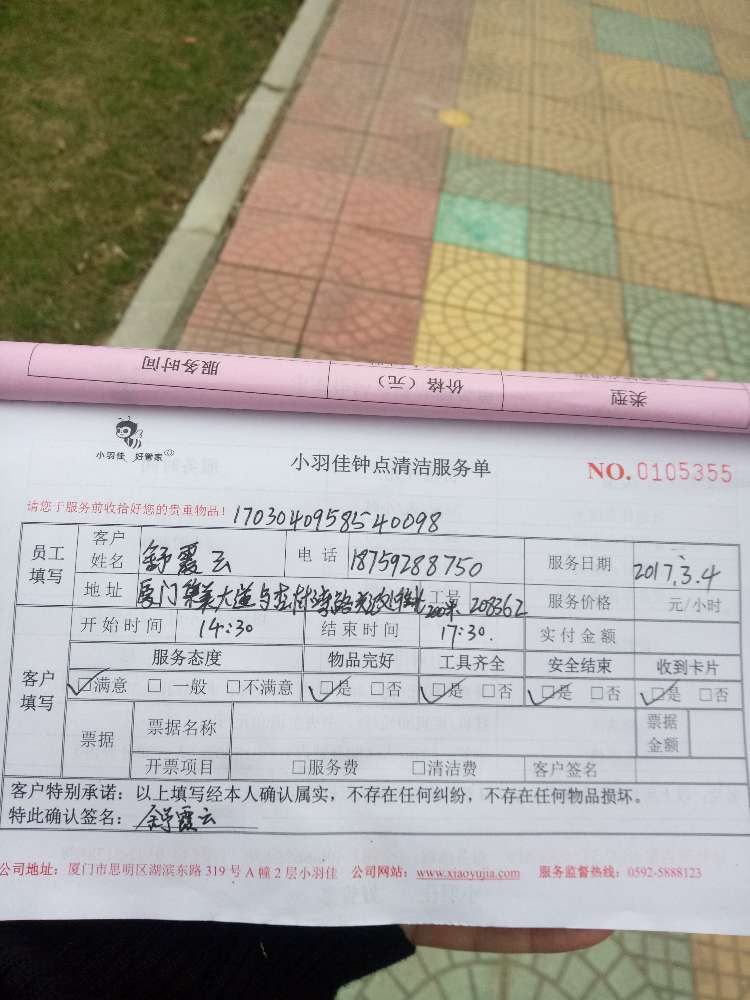 服务时间 价格（元） 类型
小羽佳 好管家
小羽佳钟点清洁服务单 NO.0105355
请您于服务前收拾好您的贵重物品！ 17030409585540098
员工填写 客户姓名 舒霞云 电话 18759288750 服务日期 2017.3.4
地址 厦门集美大道与 工号 208362 服务价格 元/小时
客户填写 开始时间 14:30 结束时间 17:30. 实付金额
服务态度 物品完好 工具齐全 安全结束 收到卡片
☑满意 □一般 □不满意 ☑是 □否 ☑是 □否 ☑是 □否 ☑是 □否
票据 票据名称 票据金额
开票项目 □服务费 □清洁费 客户签名
客户特别承诺：以上填写经本人确认属实，不存在任何纠纷，不存在任何物品损坏。
特此确认签名：舒霞云
公司地址：厦门市思明区湖滨东路 319 号 A 幢 2 层小羽佳 公司网站：www.xiaoyujia.com 服务监督热线：0592-5888123